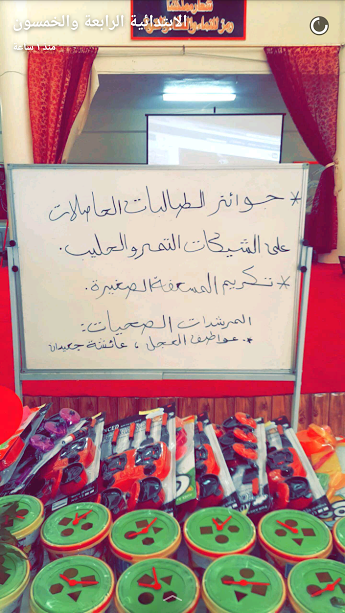 الابتدائية الرابعة والخمسون
منذ ١ ساعة
* جوائز الطالبات الحاصلات
على الشيكات التمر والحليب.
* تكريم المسعفة الصغيرة.
المرشدات الصحيات:
* عواطف العجل ، عائشة جعيدان